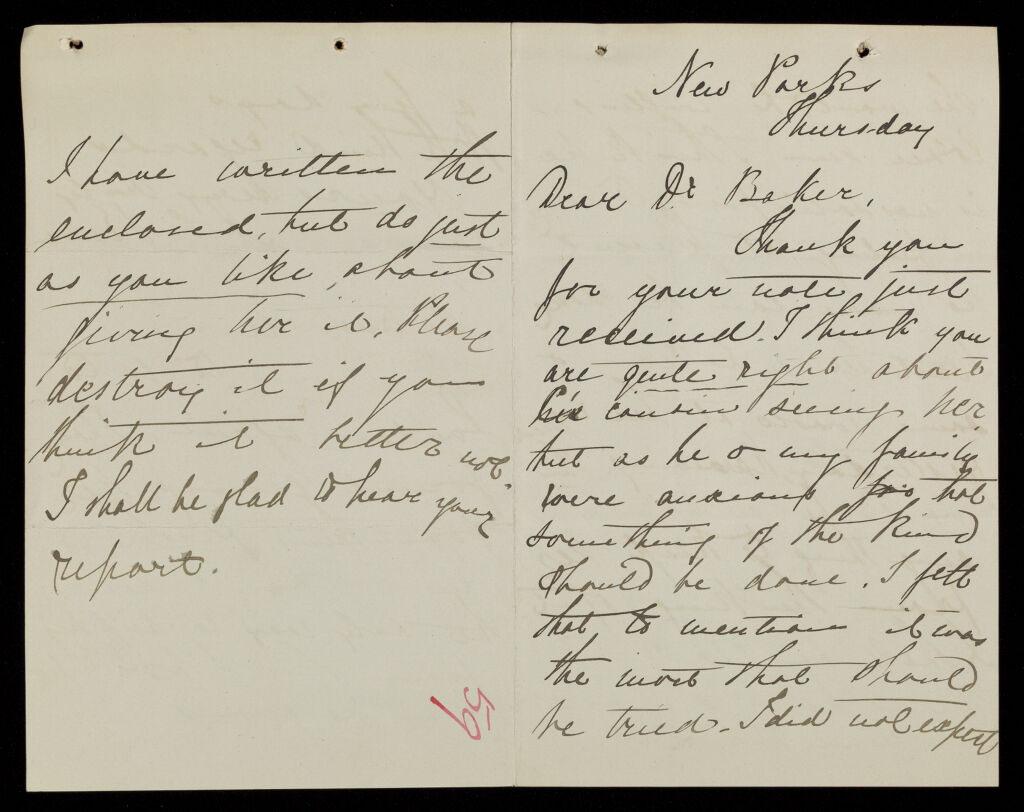 New Parks
Thursday
Dear Dr Baker,
Thank you
for your note just
received. I think you
are quite right about
his cousin seeing her
but as he & my family
were anxious for that
something of the kind
should be done. I felt
that to mention it was
the most that should
be tried. I did not expect
I have written the
enclosed, but do just
as you like about
giving her it. Please
destroy it if you
think it better not.
I shall be glad to hear your
report.
59